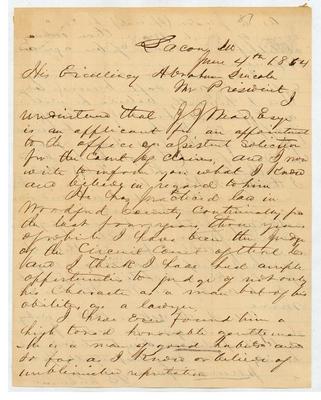 87
Lacon, Ill
June 4th 1864
His Excellency Abraham Lincoln
Mr President I
understand that J J Mead Esqr
is an applicant for an appointment
to the office of assistant solicitor
for the Court of Claims, and I now
write to inform you what I know
and believe in regard to him
He has practiced law in
Woodford County Continually for
the last years, three years
of which I have been the Judge
of the Circuit Court of that Co
and I think I have had ample
opportunities to judge of not only
his character as a man but of his
ability as a lawyer
I have ever found him a
high toned honorable gentleman
He is a man of good habits and
so far as I know or believe of
unblemished reputation